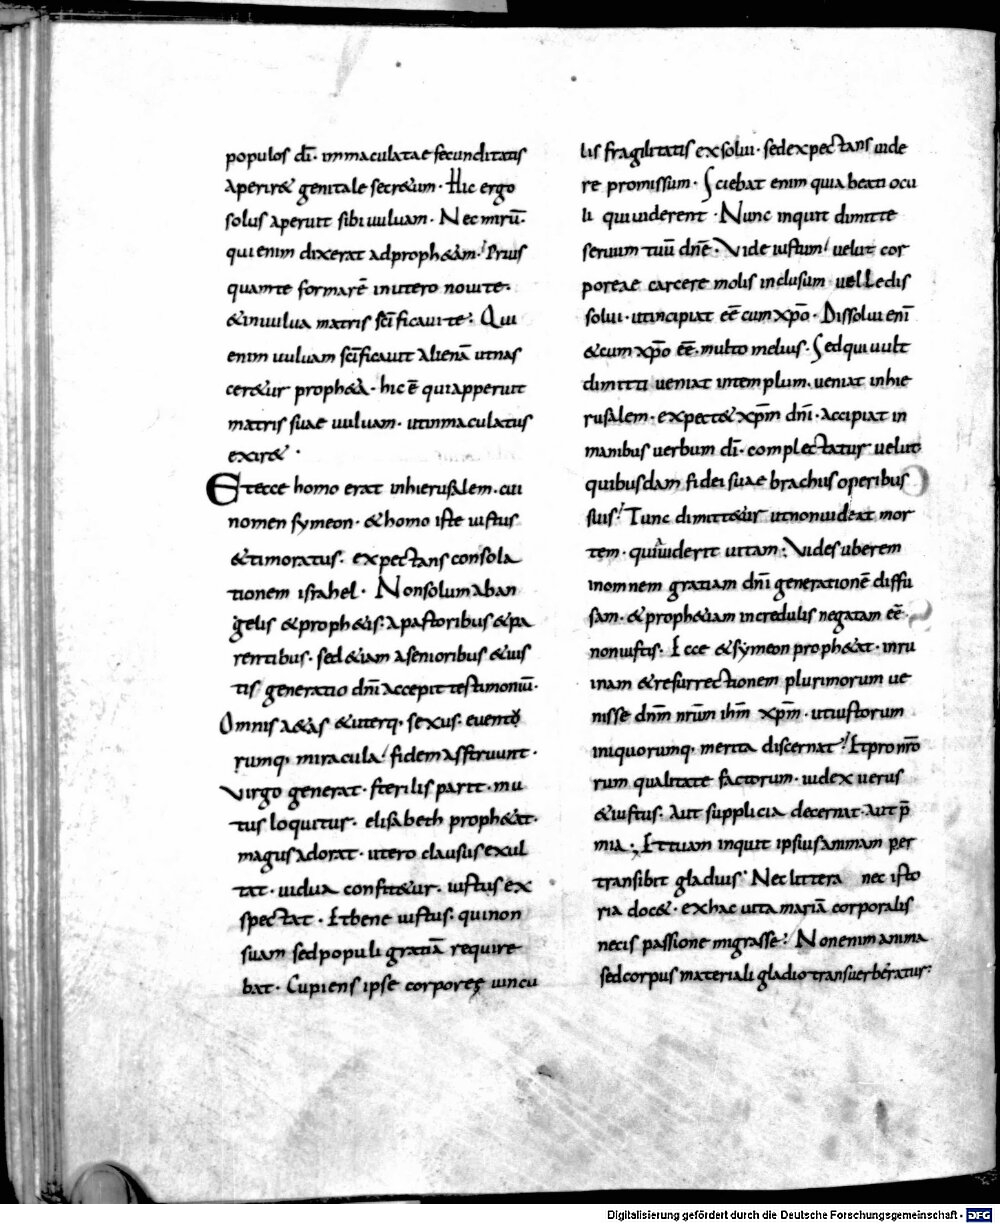 populos dī· immaculatae fecunditatis
aperir& genitale secr&um· Hic ergo
solus aperuit sibi uuluam· Nec mirū·
qui enim dixerat ad proph&am· Prius
quam te formarē in utero noui te·
& in uulua matris scīficaui te; Qui
enim uuluam scīficauit alienā ut nas
cer&ur proph&a· hic ē qui apperuit
matris suae uuluam· ut inmaculatus
exir&·
Et ecce homo erat in hierusalem· cui
nomen symeon· & homo iste iustus
& timoratus· expectans consola
tionem israhel· Non solum ab an
gelis & proph&is· a pastoribus & pa
rentibus· sed &iam a senioribus & ius
tis generatio dnī accepit testimoniū·
Omnis a&as & uterq; sexus· euento
rumq; miracula fidem asstruunt·
Virgo generat· sterilis parit· mu
tus loquitur· elisabeth proph&at·
magus adorat· utero clausus exul
tat· uidua confit&ur· iustus ex
spectat· Et bene iustus· qui non
suam sed populi gratiā require
bat· Cupiens ipse corporeę uincu
lis fragilitatis exsolui· sed expectans uide
re promissum· Sciebat enim quia beati ocu
li qui uiderent· Nunc inquit dimitte
seruum tuū dnē· Vide iustum uelut cor
poreae carcere molis inclusum uelle dis
solui· ut incipiat eē cum xpō· Dissolui enī
& cum xpō eē· multo melius· Sed qui uult
dimitti ueniat in templum· ueniat in hie
rusalem· expect& xpm̄ dnī· Accipiat in
manibus uerbum dī· complectatur uelut
quibusdam fidei suae brachiis operibus
suis! Tunc dimitt&ur ut non uideat mor
tem· qui uiderit uitam; Vides uberem
in omnem gratiam dnī generationē diffu
sam· & proph&iam incredulis negatam eē·
non iustis· Ecce & symeon proph&at· in ru
inam & resurrectionem plurimorum ue
nisse dnm̄ nrūm ihm̄ xpm̄· ut iustorum
iniquorumq; merita discernat! Et pro nrō
rum qualitate factorum· iudex uerus
& iustus· Aut supplicia decernit· aut p̄
mia; Et tuam inquit ipsius animam per
transibit gladius· Nec littera nec isto
ria doc&· ex hac uita mariā corporalis
necis passione migrasse! Non enim anima
sed corpus materiali gladio transuerberatur·
Digitalisierung gefördert durch die Deutsche Forschungsgemeinschaft - DFG